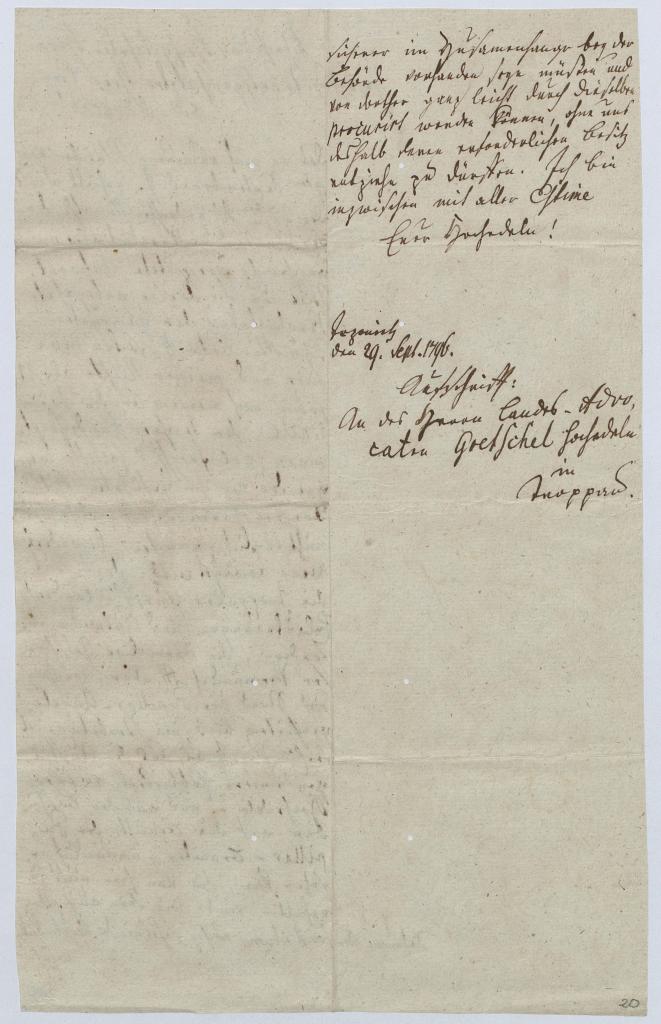 sicherer im Zusamenhange bey der
Behörde vorhanden seyn müssen und
von dorther ganz leicht durch dieselben
procurirt werden können, ohne uns
deshalb deren erforderlichen Besitz
entziehn zu dürffen. Ich bin
inzwischen mit aller Estime
Euer Hochedeln!
den 29. Sept. 1796.
Aufschrifft:
An des Herrn Landes-Advo,
caten Goetschel Hochedeln
in
Troppau.
20